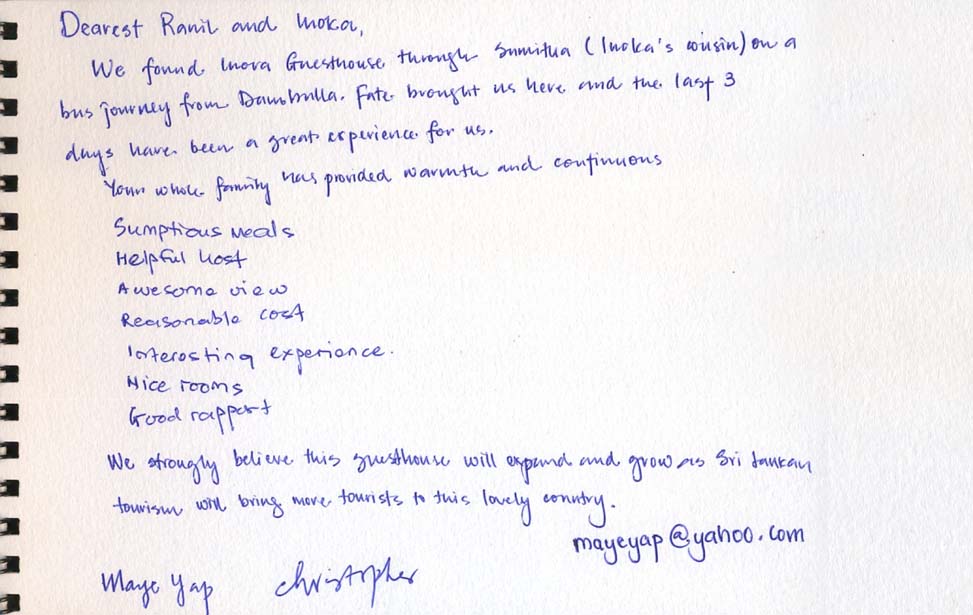 Dearest Ranil and Inoka,
We found Inova Guesthouse through Sumitua (Inoka's cousin) on a
bus journey from Dambulla. Fate brought us here and the last 3
days have been a great experience for us.
Your whole family has provided warmth and continuous
Sumptious meals
Helpful host
Awesome view
Reasonable cost
Interesting experience.
Nice rooms
Good rapport
We strongly believe this guesthouse will expand and grow as Sri Lankan
tourism will bring more tourists to this lovely country.
mayeyap@yahoo.com
Maye Yap Christopher